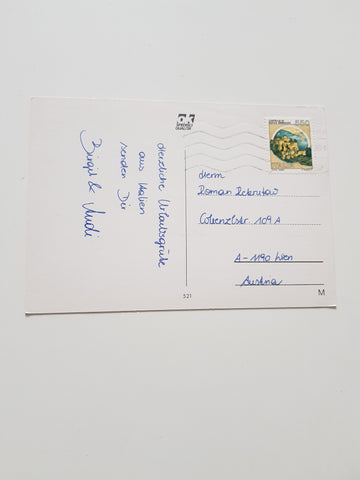 Herzliche Urlaubsgrüße
aus Italien
senden Dir
Birgit & Rudi
Herrn
Roman
Cobenzlstr. 109 A
A-1190 Wien
Austria
521
M